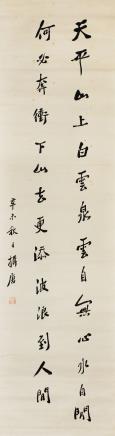 天平山上白雲泉雲自無心水自閒
何必奔衝下山去更添波浪到人間
辛未秋日揖唐